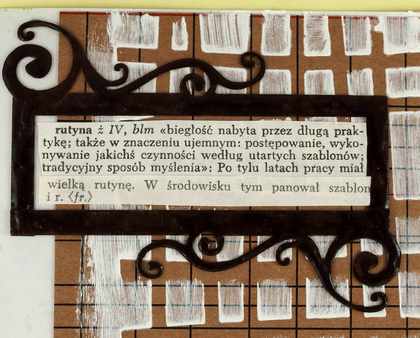 rutyna ż IV, blm «biegłość nabyta przez długą prak-
tykę; także w znaczeniu ujemnym: postępowanie, wyko-
nywanie jakichś czynności według utartych szablonów;
tradycyjny sposób myślenia»: Po tylu latach pracy miał
wielką rutynę. W środowisku tym panował szablon
i r. ⟨fr.⟩